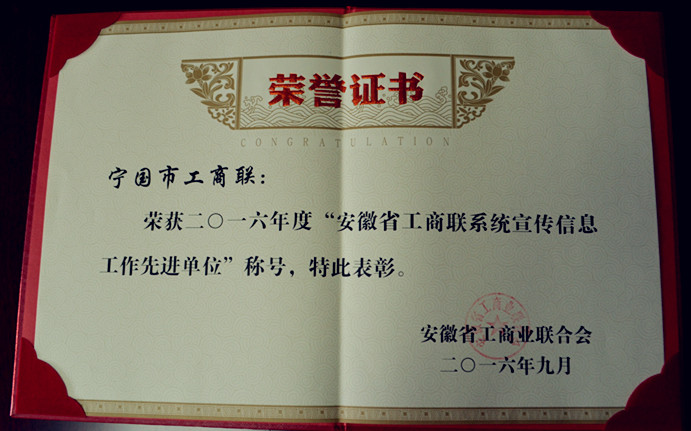 荣誉证书
CONGRATULATION
宁国市工商联：
荣获二〇一六年度“安徽省工商联系统宣传信息
工作先进单位”称号，特此表彰。
安徽省工商业联合会
二〇一六年九月